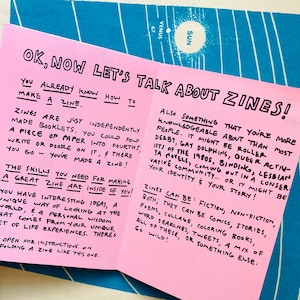 SUN
VENUS
OK, NOW LET'S TALK ABOUT ZINES!
YOU ALREADY KNOW HOW TO
MAKE A ZINE.
ZINES ARE JUST INDEPENDENTLY
MADE BOOKLETS. YOU COULD FOLD
A PIECE OF PAPER INTO FOURTHS
WRITE OR DOODLE ON IT, & THERE
YOU GO - YOU'VE MADE A ZINE!
THE SKILLS YOU NEED FOR MAKING
A GREAT ZINE ARE INSIDE OF YOU!
YOU HAVE INTERESTING IDEAS, A
UNIQUE WAY OF LOOKING AT THE
WORLD, & A PERSONAL WISDOM
THAT COMES FROM YOUR UNIQUE
SET OF LIFE EXPERIENCES. THERE'S
OPEN FOR INSTRUCTIONS ON
FOLDING A ZINE LIKE THIS ONE.
ALSO SOMETHING THAT YOU'RE MORE
KNOWLEDGEABLE ABOUT THAN MOST
PEOPLE. IT MIGHT BE ROLLER
DERBY, GAY DOLPHINS, QUEER ACTIV-
ISTS OF THE 1980S, BINDING, LESBIAN
PULP NOVELS, LONGBOARDING, OR
COMING OUT IN A CONSER-
TOWN. OR IT MIGHT BE
YOUR IDENTITY & YOUR STORY!
ZINES CAN BE: FICTION, NON-FICTION,
BOTH. THEY CAN BE COMICS, STORIES,
POEMS, COLLAGE, COLORING BOOKS,
WORD SEARCHES, TWEETS, A MIX OF
ALL OF THESE, OR SOMETHING ELSE.
GO WILD!